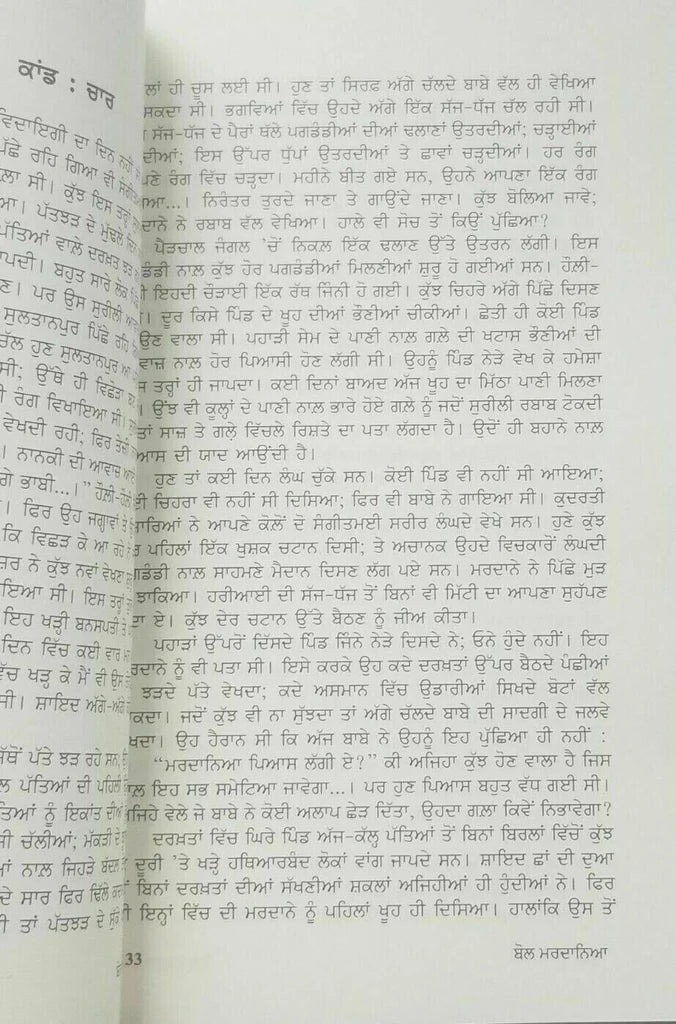 ਕਾਂਡ : ਚਾਰ
ਵਿਦਾਇਗੀ ਦਾ ਦਿਨ ਨਹੀਂ
ਪਿੱਛੇ ਰਹਿ ਗਿਆ ਵੀ
ਲਾ ਸੀ। ਕੁੱਝ ਇਸ ਤਰ੍ਹਾਂ
ਆ। ਪੱਤਝੜ ਦੇ ਮੁੱਢਲੇ
ਪੱਤਿਆਂ ਵਾਲੇ ਦਰਖ਼ਤ ਝੜ
ਜਾਪਦੀ। ਬਹੁਤ ਸਾਰੇ ਲੋਕ
ਣ। ਪਰ ਉਸ ਸੁਰੀਲੀ
ਸੁਲਤਾਨਪੁਰ ਪਿੱਛੇ ਰਹਿ
ਚੱਲ ਹੁਣ ਸੁਲਤਾਨਪੁਰ
ਸੀ; ਉੱਥੇ ਹੀ ਵਿਛੋੜਾ
ਰੰਗ ਵਿਖਾਇਆ ਸੀ।
ਵੇਖਦੀ ਰਹੀ; ਫਿਰ ਤੇਜ਼ੀ
। ਨਾਨਕੀ ਦੀ ਆਵਾਜ਼
ਗੇ ਭਾਬੀ...।” ਹੌਲੀ-ਹੌਲੀ
। ਫਿਰ ਉਹ ਜਗ੍ਹਾਵਾਂ ਤੇ
ਕਿ ਵਿਛੜ ਕੇ ਆ ਰਹੇ
ਜ਼ਰ ਨੇ ਕੁੱਝ ਨਵਾਂ ਵੇਖਣਾ
ਇਆ ਸੀ। ਇਸ ਤਰ੍ਹਾਂ
ਇਹ ਖੜ੍ਹੀ ਬਨਸਪਤੀ ਤੇ
ਦਿਨ ਵਿੱਚ ਕਈ ਵਾਰ
ਵਿੱਚ ਖੜ੍ਹ ਕੇ ਮੈਂ ਵੀ ਉਸ
ਸੀ। ਸ਼ਾਇਦ ਅੱਗੇ-ਅੱਗੇ
ਜੱਥੋਂ ਪੱਤੇ ਝੜ ਰਹੇ ਸਨ;
ਲ ਪੱਤਿਆਂ ਦੀ ਪਹਿਲੀ
ਤਿਆਂ ਨੂੰ ਇਕਾਂਤ ਦੀਆਂ
ਸੀ ਚੱਲੀਆਂ; ਮੱਕੜੀ ਦੇ
ਆਂ ਨਾਲ਼ ਜਿਹੜੇ ਬੰਦਸ਼
ਦੇ ਸਾਰ ਫਿਰ ਢਿੱਲੇ
ਤੀ ਤਾਂ ਪੱਤਝੜ ਦੇ
ਲਾਂ ਹੀ ਚੂਸ ਲਈ ਸੀ। ਹੁਣ ਤਾਂ ਸਿਰਫ਼ ਅੱਗੇ ਚੱਲਦੇ ਬਾਬੇ ਵੱਲ ਹੀ ਵੇਖਿਆ
ਸਕਦਾ ਸੀ। ਭਗਵਿਆਂ ਵਿੱਚ ਉਹਦੇ ਅੱਗੇ ਇੱਕ ਸੱਜ-ਧੱਜ ਚੱਲ ਰਹੀ ਸੀ।
ਸੱਜ-ਧੱਜ ਦੇ ਪੈਰਾਂ ਥੱਲੇ ਪਗਡੰਡੀਆਂ ਦੀਆਂ ਢਲਾਣਾਂ ਉਤਰਦੀਆਂ; ਚੜ੍ਹਾਈਆਂ
ਦੀਆਂ; ਇਸ ਉੱਪਰ ਧੁੱਪਾਂ ਉਤਰਦੀਆਂ ਤੇ ਛਾਵਾਂ ਚੜ੍ਹਦੀਆਂ। ਹਰ ਰੰਗ
ਪਣੇ ਰੰਗ ਵਿੱਚ ਚੜ੍ਹਦਾ। ਮਹੀਨੇ ਬੀਤ ਗਏ ਸਨ, ਉਹਨੇ ਆਪਣਾ ਇੱਕ ਰੰਗ
ਇਆ...। ਨਿਰੰਤਰ ਤੁਰਦੇ ਜਾਣਾ ਤੇ ਗਾਉਂਦੇ ਜਾਣਾ। ਕੁੱਝ ਬੋਲਿਆ ਜਾਵੇ;
ਦਾਨੇ ਨੇ ਰਬਾਬ ਵੱਲ ਵੇਖਿਆ। ਹਾਲੇ ਵੀ ਸੋਚ ਤੋਂ ਕਿਉਂ ਪੁੱਛਿਆ?
ਪੈੜਚਾਲ ਜੰਗਲ ’ਚੋਂ ਨਿਕਲ਼ ਇੱਕ ਢਲਾਣ ਉੱਤੇ ਉਤਰਨ ਲੱਗੀ। ਇਸ
ਡੰਡੀ ਨਾਲ਼ ਕੁੱਝ ਹੋਰ ਪਗਡੰਡੀਆਂ ਮਿਲਣੀਆਂ ਸ਼ੁਰੂ ਹੋ ਗਈਆਂ ਸਨ। ਹੌਲ਼ੀ-
ਇਹਦੀ ਚੌੜਾਈ ਇੱਕ ਰੱਥ ਜਿੰਨੀ ਹੋ ਗਈ। ਕੁੱਝ ਚਿਹਰੇ ਅੱਗੇ ਪਿੱਛੇ ਦਿਸਣ
। ਦੂਰ ਕਿਸੇ ਪਿੰਡ ਦੇ ਖੂਹ ਦੀਆਂ ਭੌਣੀਆਂ ਚੀਕੀਆਂ। ਛੇਤੀ ਹੀ ਕੋਈ ਪਿੰਡ
ਉਣ ਵਾਲਾ ਸੀ। ਪਹਾੜੀ ਸੇਮ ਦੇ ਪਾਣੀ ਨਾਲ਼ ਗਲ਼ੇ ਦੀ ਖਟਾਸ ਭੌਣੀਆਂ ਦੀ
ਵਾਜ਼ ਨਾਲ਼ ਹੋਰ ਪਿਆਸੀ ਹੋਣ ਲੱਗੀ ਸੀ। ਉਹਨੂੰ ਪਿੰਡ ਨੇੜੇ ਵੇਖ ਕੇ ਹਮੇਸ਼ਾ
ਤਰ੍ਹਾਂ ਹੀ ਜਾਪਦਾ। ਕਈ ਦਿਨਾਂ ਬਾਅਦ ਅੱਜ ਖੂਹ ਦਾ ਮਿੱਠਾ ਪਾਣੀ ਮਿਲਣਾ
। ਉਂਝ ਵੀ ਕੂਲ੍ਹਾਂ ਦੇ ਪਾਣੀ ਨਾਲ਼ ਭਾਰੇ ਹੋਏ ਗਲ਼ੇ ਨੂੰ ਜਦੋਂ ਸੁਰੀਲੀ ਰਬਾਬ ਟੋਕਦੀ
ਤਾਂ ਸਾਜ਼ ਤੇ ਗਲ਼ੇ ਵਿੱਚਲੇ ਰਿਸ਼ਤੇ ਦਾ ਪਤਾ ਲੱਗਦਾ ਹੈ। ਉਦੋਂ ਹੀ ਬਹਾਨੇ ਨਾਲ਼
ਆਸ ਦੀ ਯਾਦ ਆਉਂਦੀ ਹੈ।
ਹੁਣ ਤਾਂ ਕਈ ਦਿਨ ਲੰਘ ਚੁੱਕੇ ਸਨ। ਕੋਈ ਪਿੰਡ ਵੀ ਨਹੀਂ ਸੀ ਆਇਆ;
ਚਿਹਰਾ ਵੀ ਨਹੀਂ ਸੀ ਦਿਸਿਆ; ਫਿਰ ਵੀ ਬਾਬੇ ਨੇ ਗਾਇਆ ਸੀ। ਕੁਦਰਤੀ
ਾਰਿਆਂ ਨੇ ਆਪਣੇ ਕੋਲ਼ੋਂ ਦੋ ਸੰਗੀਤਮਈ ਸਰੀਰ ਲੰਘਦੇ ਵੇਖੇ ਸਨ। ਹੁਣੇ ਕੁੱਝ
ਪਹਿਲਾਂ ਇੱਕ ਖੁਸ਼ਕ ਚਟਾਨ ਦਿਸੀ; ਤੇ ਅਚਾਨਕ ਉਹਦੇ ਵਿਚਕਾਰੋਂ ਲੰਘਦੀ
ਗਡੰਡੀ ਨਾਲ਼ ਸਾਹਮਣੇ ਮੈਦਾਨ ਦਿਸਣ ਲੱਗ ਪਏ ਸਨ। ਮਰਦਾਨੇ ਨੇ ਪਿੱਛੇ ਮੁੜ
ਝਾਕਿਆ। ਹਰੀਆਈ ਦੀ ਸੱਜ-ਧੱਜ ਤੋਂ ਬਿਨਾਂ ਵੀ ਮਿੱਟੀ ਦਾ ਆਪਣਾ ਸੁਹੱਪਣ
ਦਾ ਏ। ਕੁੱਝ ਦੇਰ ਚਟਾਨ ਉੱਤੇ ਬੈਠਣ ਨੂੰ ਜੀਅ ਕੀਤਾ।
ਪਹਾੜਾਂ ਉੱਪਰੋਂ ਦਿੱਸਦੇ ਪਿੰਡ ਜਿੰਨੇ ਨੇੜੇ ਦਿਸਦੇ ਨੇ; ਓਨੇ ਹੁੰਦੇ ਨਹੀਂ। ਇਹ
ਰਦਾਨੇ ਨੂੰ ਵੀ ਪਤਾ ਸੀ। ਇਸੇ ਕਰਕੇ ਉਹ ਕਦੇ ਦਰਖ਼ਤਾਂ ਉੱਪਰ ਬੈਠਦੇ ਪੰਛੀਆਂ
ਝੜਦੇ ਪੱਤੇ ਵੇਖਦਾ; ਕਦੇ ਅਸਮਾਨ ਵਿੱਚ ਉਡਾਰੀਆਂ ਸਿਖਦੇ ਬੋਟਾਂ ਵੱਲ
ਕਦਾ। ਜਦੋਂ ਕੁੱਝ ਵੀ ਨਾ ਸੁੱਝਦਾ ਤਾਂ ਅੱਗੇ ਚੱਲਦੇ ਬਾਬੇ ਦੀ ਸਾਦਗੀ ਦੇ ਜਲਵੇ
ਖਦਾ। ਉਹ ਹੈਰਾਨ ਸੀ ਕਿ ਅੱਜ ਬਾਬੇ ਨੇ ਉਹਨੂੰ ਇਹ ਪੁੱਛਿਆ ਹੀ ਨਹੀਂ :
“ਮਰਦਾਨਿਆ ਪਿਆਸ ਲੱਗੀ ਏ?” ਕੀ ਅਜਿਹਾ ਕੁੱਝ ਹੋਣ ਵਾਲਾ ਹੈ ਜਿਸ
ਾਲ਼ ਇਹ ਸਭ ਸਮੇਟਿਆ ਜਾਵੇਗਾ...। ਪਰ ਹੁਣ ਪਿਆਸ ਬਹੁਤ ਵੱਧ ਗਈ ਸੀ।
ਜਿਹੇ ਵੇਲੇ ਜੇ ਬਾਬੇ ਨੇ ਕੋਈ ਅਲਾਪ ਛੇੜ ਦਿੱਤਾ, ਉਹਦਾ ਗਲ਼ਾ ਕਿਵੇਂ ਨਿਭਾਵੇਗਾ?
ਦਰਖ਼ਤਾਂ ਵਿੱਚ ਘਿਰੇ ਪਿੰਡ ਅੱਜ-ਕੱਲ੍ਹ ਪੱਤਿਆਂ ਤੋਂ ਬਿਨਾਂ ਬਿਰਲਾਂ ਵਿੱਚੋਂ ਕੁੱਝ
ਦੂਰੀ ’ਤੇ ਖੜ੍ਹੇ ਹਥਿਆਰਬੰਦ ਲੋਕਾਂ ਵਾਂਗ ਜਾਪਦੇ ਸਨ। ਸ਼ਾਇਦ ਛਾਂ ਦੀ ਦੁਆ
ਬਿਨਾਂ ਦਰਖ਼ਤਾਂ ਦੀਆਂ ਸੱਖਣੀਆਂ ਸ਼ਕਲਾਂ ਅਜਿਹੀਆਂ ਹੀ ਹੁੰਦੀਆਂ ਨੇ। ਫਿਰ
ਇਨ੍ਹਾਂ ਵਿੱਚ ਦੀ ਮਰਦਾਨੇ ਨੂੰ ਪਹਿਲਾਂ ਖੂਹ ਹੀ ਦਿਸਿਆ। ਹਾਲਾਂਕਿ ਉਸ ਤੋਂ
33
ਬੋਲ ਮਰਦਾਨਿਆ